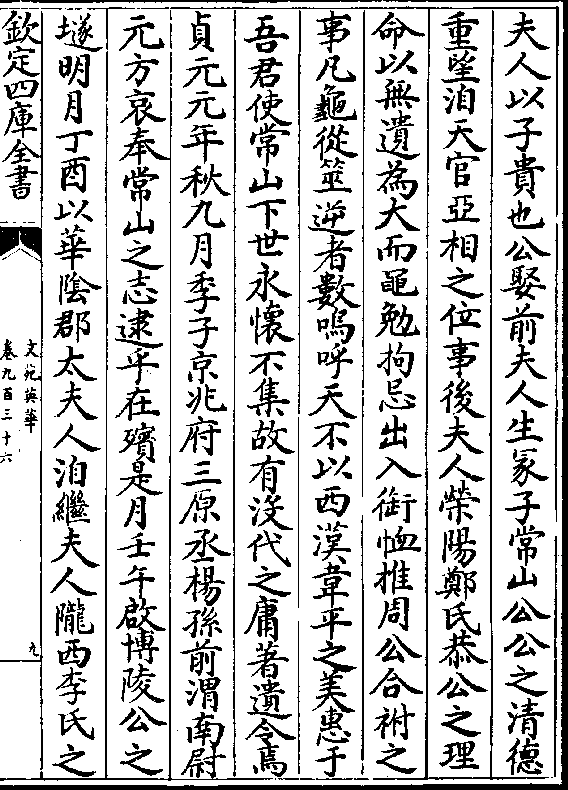 夫人以子貴也公娶前夫人生冢子常山公公之清德
重望洎天官亞相之位事後夫人榮陽鄭氏恭公之理
命以無遺為大而黽勉拘忌出入銜恤推周公合祔之
事凡龜從筮逆者數嗚呼天不以西漢韋平之美惠于
吾君使常山下世永懷不集故有沒代之庸著遺令焉
貞元元年秋九月季子京兆府三原丞楊孫前渭南尉
元方哀奉常山之志逮乎在殯是月壬午啟博陵公之
墜明月丁酉以華陰郡太夫人洎繼夫人隴西李氏之
欽定四庫全書
文苑英華
卷九百三十六
九